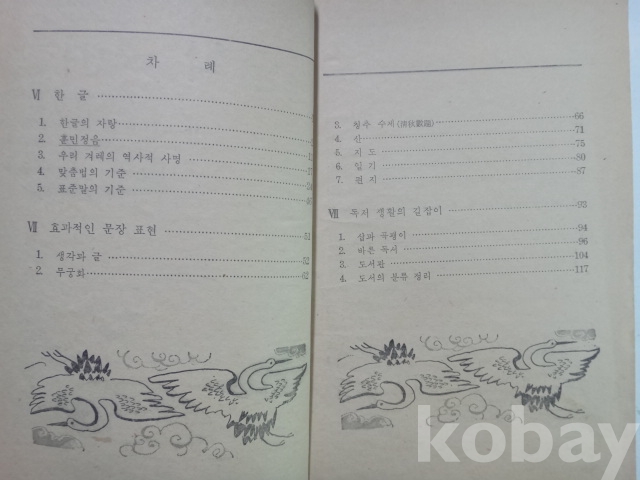 차 례
Ⅵ 한 글
1. 한글의 자랑
2. 훈민정음
3. 우리 겨레의 역사적 사명
4. 맞춤법의 기준
5. 표준말의 기준
Ⅶ 효과적인 문장 표현 51
1. 생각과 글 52
2. 무궁화
3. 청추 수제 66
4. 산 71
5. 지도 75
6. 일기 80
7. 편지 87
Ⅷ 독서 생활의 길잡이 93
1. 삽과 곡괭이 94
2. 바른 독서 96
3. 도서관 104
4. 도서의 분류 정리 117
kobay